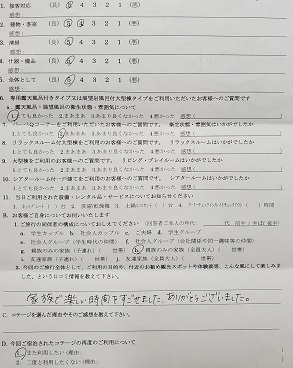 1. 接客対応 （良） 5 4 3 2 1 （悪）
感想：
2. 建物・客室 （良） 5 4 3 2 1 （悪）
感想：
3. 清掃 （良） 5 4 3 2 1 （悪）
感想：
4. 什器・備品 （良） 5 4 3 2 1 （悪）
感想：
5. 全体として （良） 5 4 3 2 1 （悪）
感想：
6 専用露天風呂付きタイプ又は展望岩風呂付大型棟タイプをご利用いただいたお客様へのご質問です
露天風呂・展望岩風呂の衛生状態・雰囲気について
1.とても良かった 2.まあまあ 3.あまり良くなかった 4.悪かった 感想（
をご利用いただいたお客様へのご質問です。 衛生状態・雰囲気はいかがでしたか
1.とても良かった 2.まあまあ 3.あまり良くなかった 4.悪かった 感想（
8 リラックスルーム付大型棟をご利用のお客様へのご質問です リラックスルームはいかがでしたか
1.とても良かった 2.まあまあ 3.あまり良くなかった 4.悪かった 感想（
9. 大型棟をご利用のお客様へのご質問です。 リビング・プレイルームはいかがでしたか
1.とても良かった 2.まあまあ 3.あまり良くなかった 4.悪かった 感想（
10. シアタールーム付一戸建てをご利用のお客様へのご質問です。 シアタールームはいかがでしたか
1.とても良かった 2.まあまあ 3.あまり良くなかった 4.悪かった 感想（
11. 当日ご利用された設備・レンタル品・サービスについてお知らせください
B. お客様ご自身についてお伺いいたします
1.ご旅行の同伴者の構成についておしえてください （回答者ご本人の年代：
a. 学生カップル b. 社会人カップル c. ご夫婦 d. 学生グループ
e. 社会人グループ（学生時代の仲間） f. 社会人グループ（会社関係や同一趣味等の仲間）
g. 親族のみのご家族（子連れ）（ 世帯） h. 親族のみのご家族（全員大人）（ 世帯）
友達家族（子連れ）（ 世帯） 友達家族（全員大人）（ 世帯）
家族で楽しい時間をすごせました。ありがとうございました。
C. コテージを選んだ理由やそのご感想を教えて下さい。
D. 今回ご宿泊されたコテージの再度のご利用について
1. また利用したい（理由：
2. 二度と利用したくない（理由：